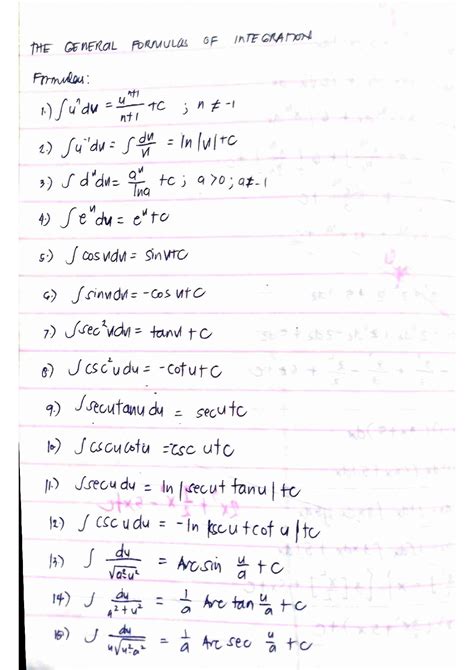 THE GENERAL FORMULAS OF INTEGRATION
Formulas:
1.) ∫uⁿdu = uⁿ⁺¹/n+1 + C ; n ≠ -1
2.) ∫u⁻¹du = ∫ du/u = ln|u|+C
3) ∫ aᵘdu = aᵘ/lna + C ; a > 0 ; a ≠ -1
4.) ∫eᵘdu = eᵘ+C
5.) ∫ cosudu = sinu+C
6.) ∫sinudu = -cos u+C
7.) ∫sec²udu = tanu + C
8.) ∫csc²udu = -cotu+C
9.) ∫secutanudu = secu+C
10.) ∫cscucotu = -csc u+C
11.) ∫secudu = ln|secu+tanu|+C
12.) ∫cscudu = -ln|cscu+cotu|+C
13.) ∫ du/√a²-u² = Arcsin u/a + C
14.) ∫ du/a²+u² = 1/a Arc tan u/a + C
15.) ∫ du/u√u²-a² = 1/a Arc sec u/a + C